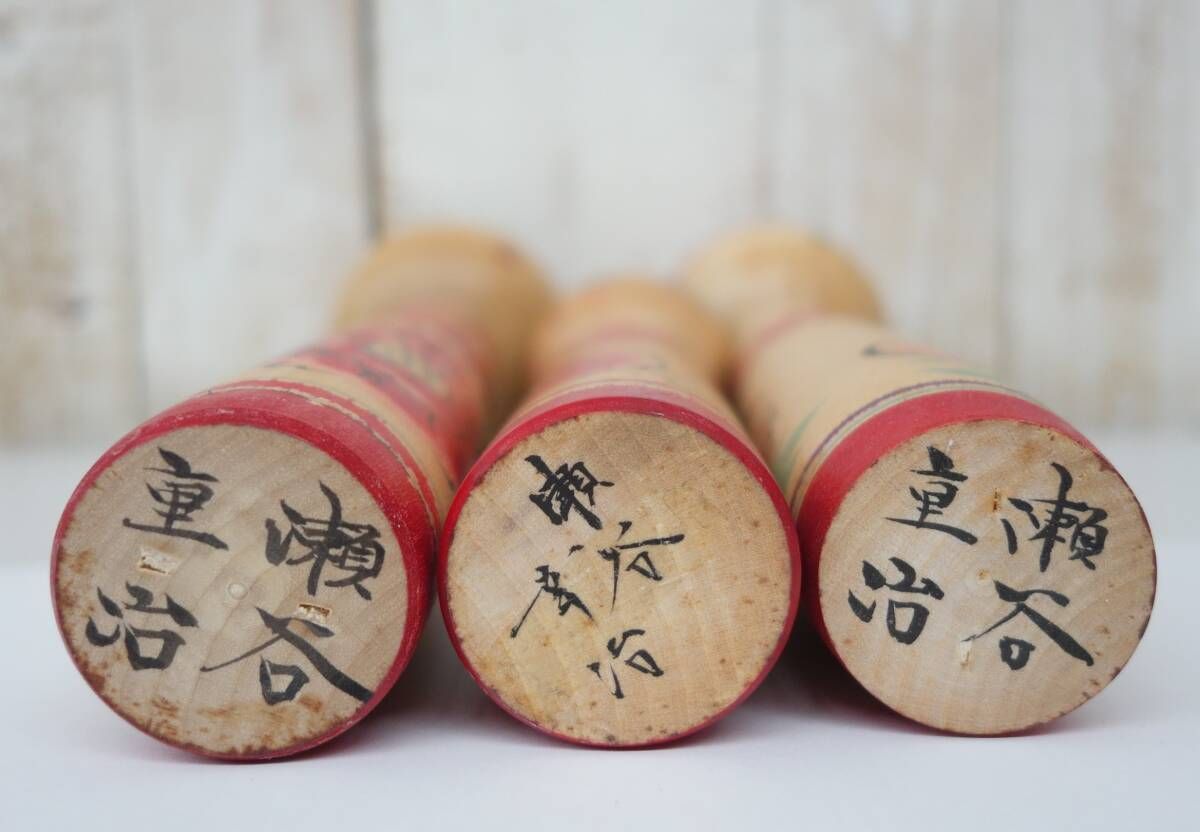 瀬谷
重治
瀬谷
重治
瀬谷
重治